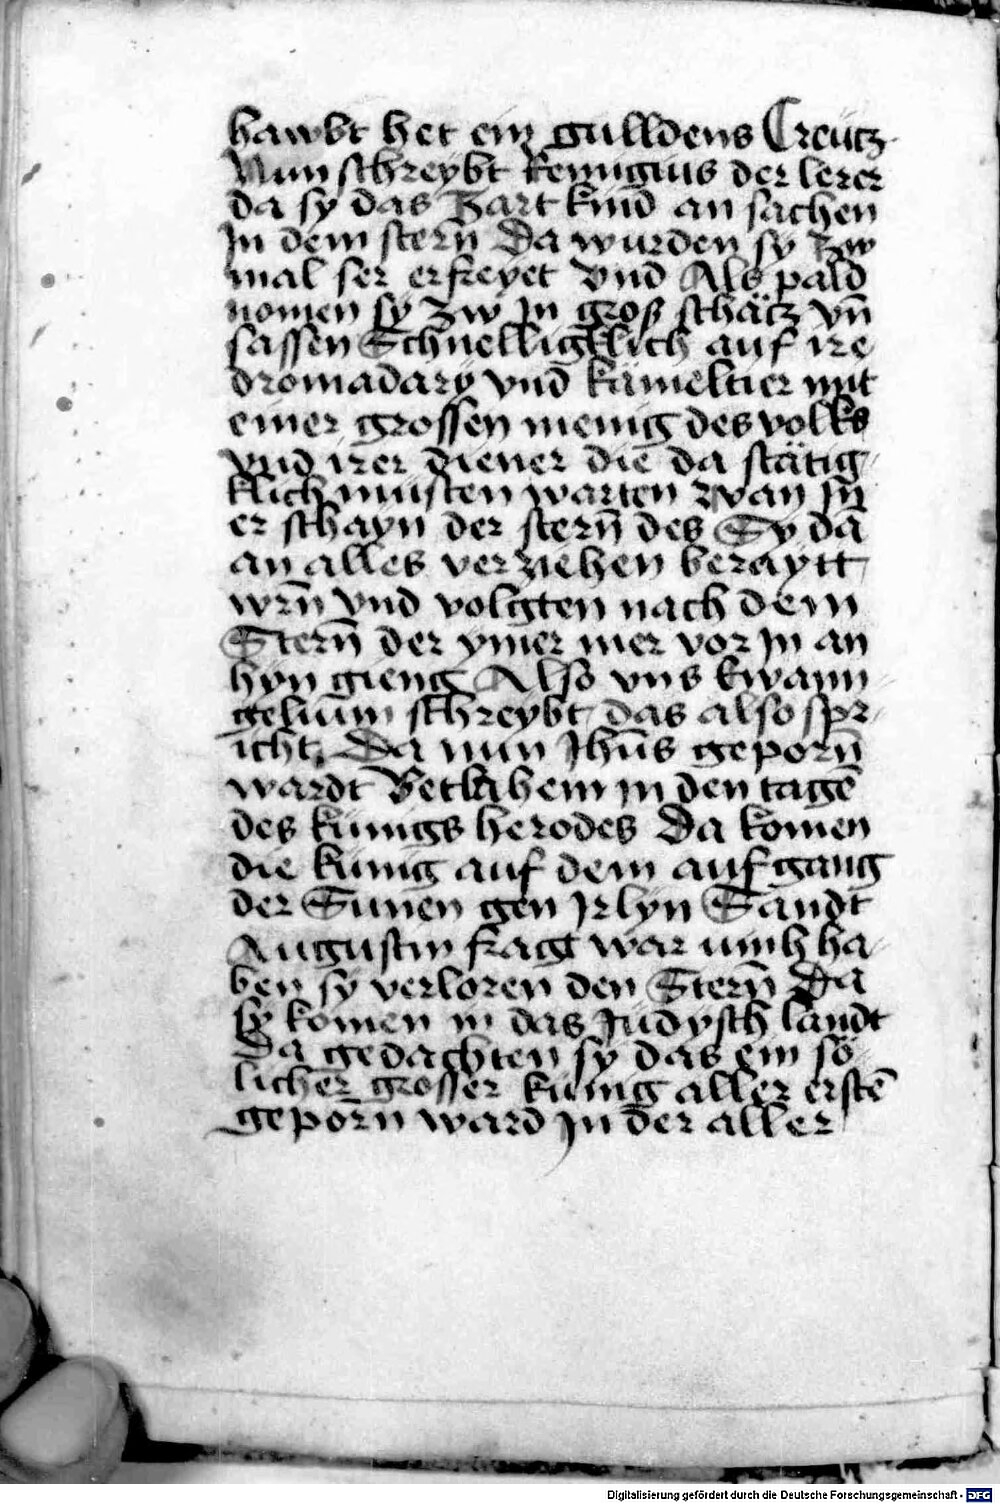 hawbt het ein gulldens Creütz
Nun schreybt Remigius der lerer
da sy das Zart kind an sachen
In dem stern̄ Da wurden sy Zw
mal ser erfreyet Vnd Als pald
nomen sy Zw In groß schätz vn̄
sassen Schnelligklich auf ire
dromadarÿ vnd kameltier mit
einer grossen menig des volks
vnd irer diener die da stätig
klich musten warten wan In
er schayn der stern̄ des Sy da
an alles verziehen beraytt
wrn̄ vnd volgten nach dem
Stern̄ der ymer mer vor In an
hyn gieng Also vns Ewann
gelium̄ schreybt das also spr
icht Da nun Jhūs geporn̄
wardt Betlahem in den tagē
des künigs herodes Da komen
die künig auf dem aufgang
der Sunen gen Jrlyn Sandt
Augustin fragt war umb ha
ben sy verloren den Stern̄ Da
sy komen in das Jüdysch landt
Da gedachten sy das ein sö
licher grosser künig aller erstē
geporn̄ ward In der aller
Digitalisierung gefördert durch die Deutsche Forschungsgemeinschaft - DFG